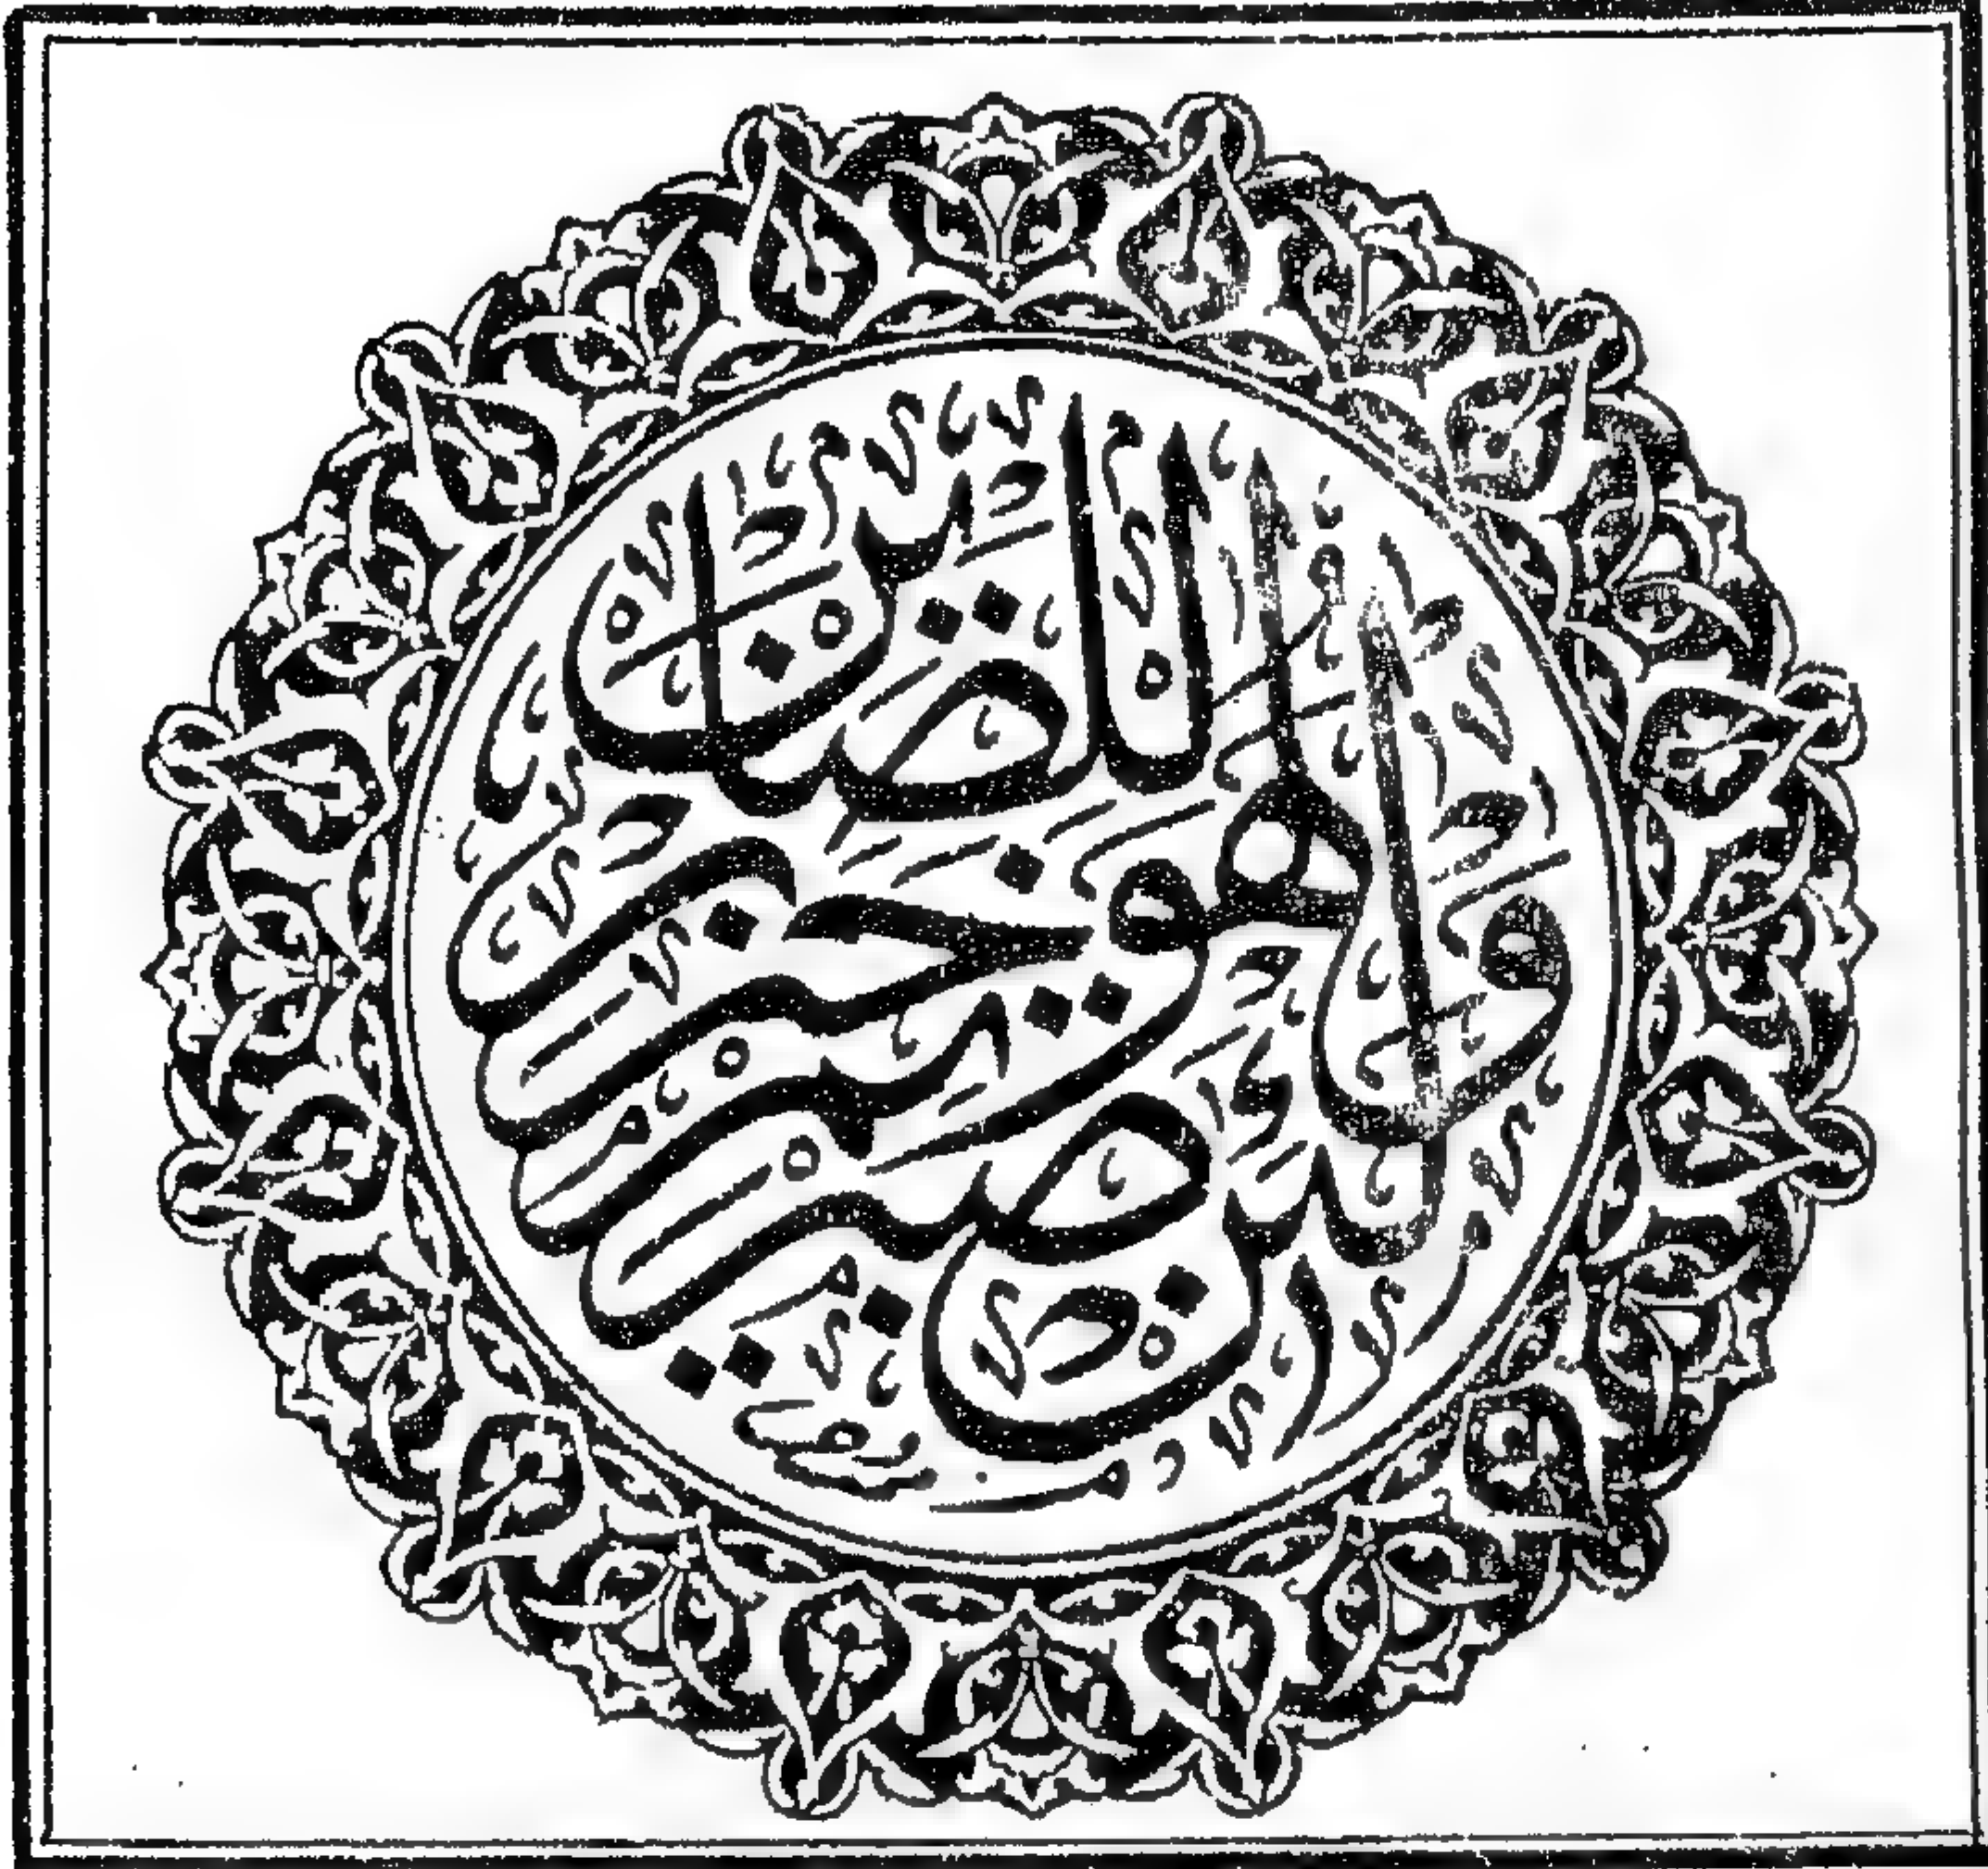 ولئن صبرتم لهو خير للصابرين